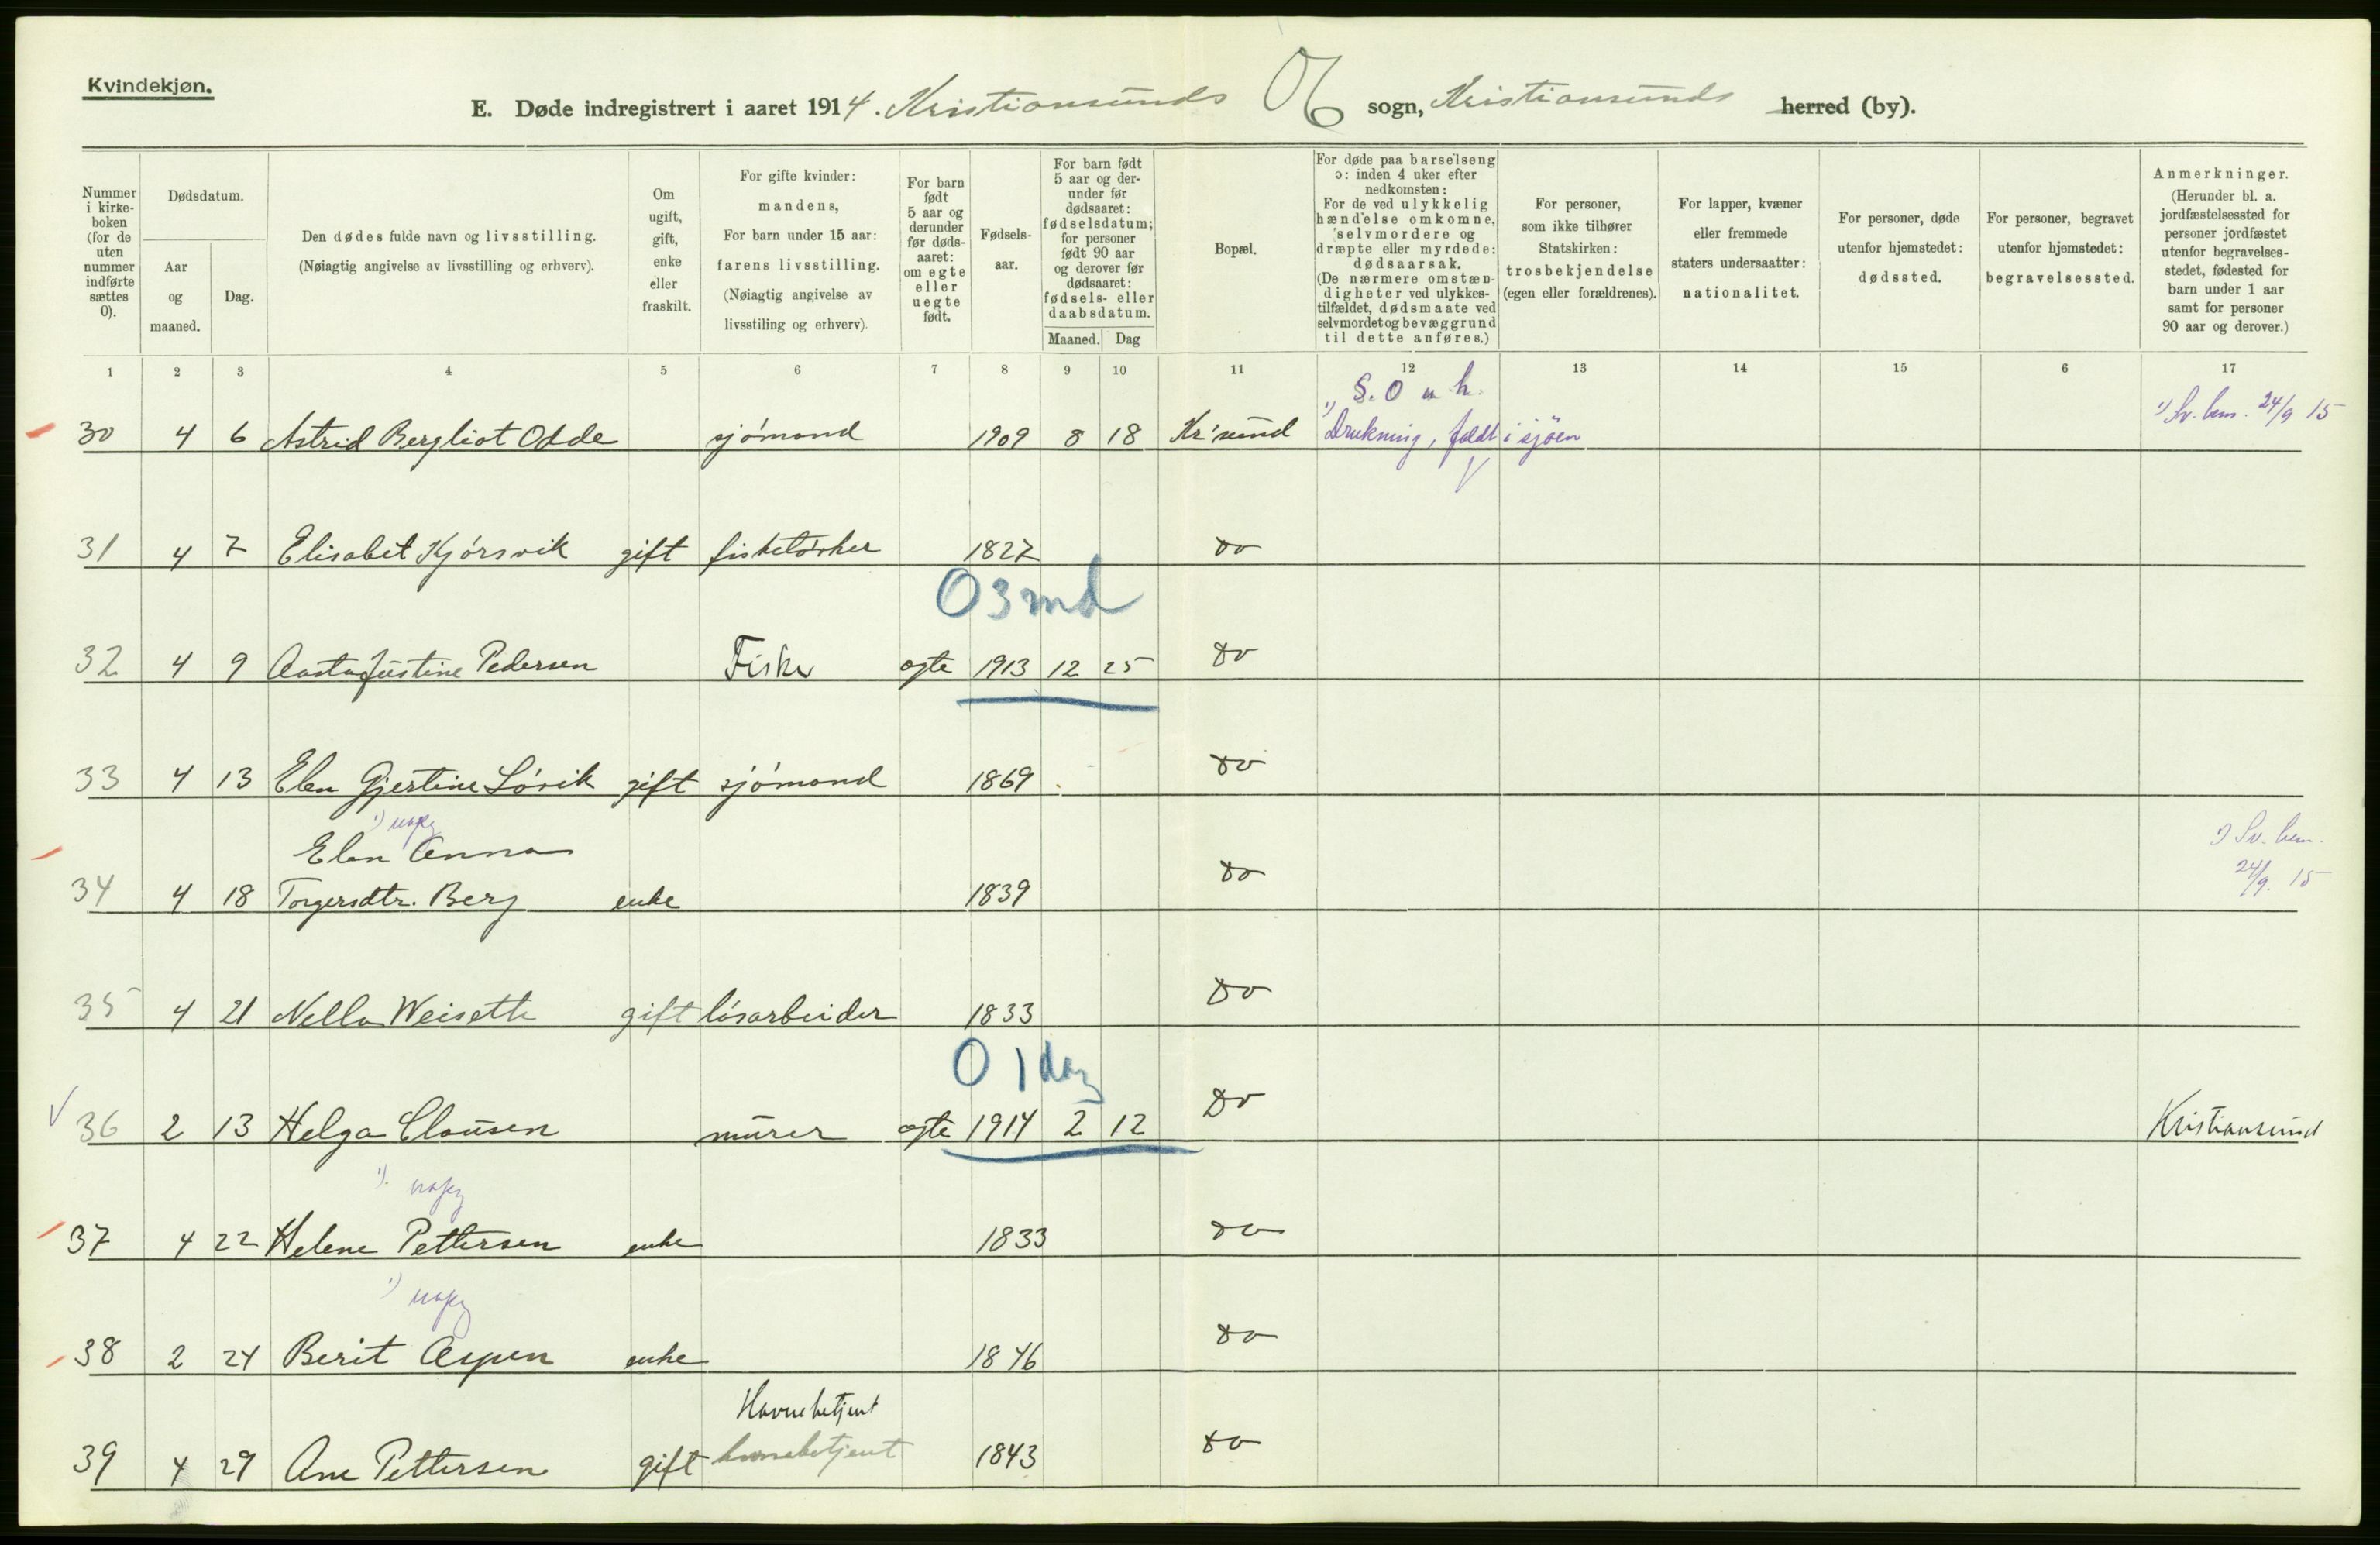 Kvindekjøn.
E. Døde indregistrert i aaret 1914. Kristiansunds sogn, Kristiansunds herred (by).
Nummer i kirkeboken (for de uten nummer indførte sættes 0).
Dødsdatum.
Aar og maaned.
Dag.
Den dødes fulde navn og livsstilling.
(Nøiagtig angivelse av livsstilling og erhverv).
Om ugift, gift, enke eller fraskilt.
For gifte kvinder: mandens,
For barn under 15 aar: farens livsstilling.
(Nøiagtig angivelse av livsstiling og erhverv).
For barn født 5 aar og derunder før dødsaaret: om egte eller uegte født.
Fødselsaar.
For barn født 5 aar og derunder før dødsaaret: fødselsdatum; for personer født 90 aar og derover før dødsaaret: fødsels- eller daabsdatum.
Maaned. Dag
Bopæl.
For døde paa barselseng ɔ: inden 4 uker efter nedkomsten:
For de ved ulykkelig hændelse omkomne, selvmordere og dræpte eller myrdede: dødsaarsak.
(De nærmere omstændigheter ved ulykkestilfældet, dødsmaate ved selvmordet og bevæggrund til dette anføres.)
For personer, som ikke tilhører Statskirken: trosbekjendelse (egen eller forældrenes).
For lapper, kvæner eller fremmede staters undersaatter: nationalitet.
For personer, døde utenfor hjemstedet: dødssted.
For personer, begravet utenfor hjemstedet: begravelsessted.
Anmerkninger.
(Herunder bl. a. jordfæstelsessted for personer jordfæstet utenfor begravelsesstedet, fødested for barn under 1 aar samt for personer 90 aar og derover.)
1 2 3 4 5 6 7 8 9 10 11 12 13 14 15 6 17
1) S. O u h. 1) Sv. hem. 24/9 15
30 4 6 Astrid Bergliot Odde sjömand 1909 8 18 Kr'sund Drukning, faldt i sjöen
31 4 7 Elisabet Kjórsvik gift fisketörker 1827 do
0 3 md
32 4 9 Aasta Justine Pedersen Fisker egte 1913 12 25 do
33 4 13 Elen Gjertine Lövik gift sjómand 1869 do
1)
Elen Anna 1) Sv. hem.
34 4 18 Torgersdtr. Berg enke 1839 do 24/9. 15
35 4 21 Nella Weiseth gift lösarbeider 1833 do
0 1 dag
36 2 13 Helga Clausen murer egte 1914 2 12 Do Kristiansund
1).
37 4 22 Helene Pettersen enke 1833 do
1)
38 2 24 Berit Aspen enke 1846 do
Havnebetjent
39 4 29 Ane Pettersen gift havnebetjent 1843 do